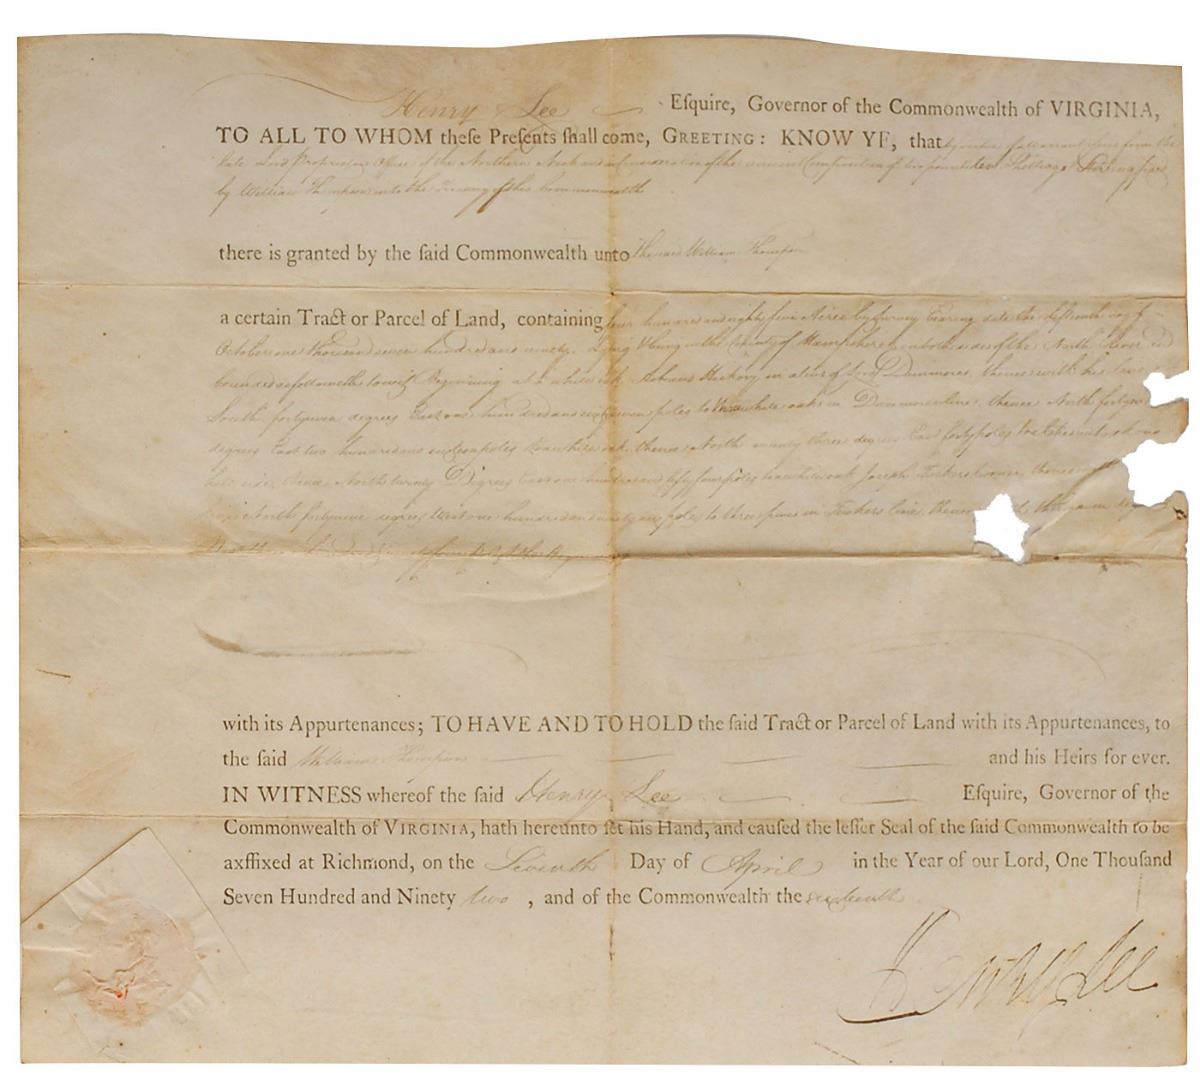 Henry Lee Efquire, Governor of the Commonwealth of VIRGINIA,
TO ALL TO WHOM thefe Prefents fhall come, GREETING: KNOW YE, that by virtue of a Warrant from the
late Lord Proprietors Office of the Northern Neck and in Consideration of the ancient Composition of two pounds ten Shillings Sterling paid
by William Thompson into the Treasury of this Commonwealth
there is granted by the faid Commonwealth unto the said William Thompson
a certain Tract or Parcel of Land, containing four hundred and eighty five Acres by Survey bearing date the fifteenth day of
October one thousand seven hundred and ninety. Lying & being in the County of Hampshire on both sides of the North River and
bounded as followeth towit Beginning at a white oak and Hickory in a line of Lord Dunmores, thence with his line
South forty degrees East one hundred and poles to white oaks in Dunmores line, thence North forty
degrees East two hundred and sixteen poles to a white oak thence North seventy three degrees East forty poles to a Chesnut oak on a
hill side, thence North twenty Degrees East one hundred and fifty four poles to a white oak Joseph Tuckers corner thence with
North forty nine degrees West one hundred and poles to three pines in Tuckers line, thence degrees
West three hundred poles to the Beginning
with its Appurtenances; TO HAVE AND TO HOLD the faid Tract or Parcel of Land with its Appurtenances, to
the faid William Thompson and his Heirs for ever.
IN WITNESS whereof the faid Henry Lee Efquire, Governor of the
Commonwealth of VIRGINIA, hath hereunto fet his Hand, and caufed the leffer Seal of the faid Commonwealth to be
axffixed at Richmond, on the Seventh Day of April in the Year of our Lord, One Thoufand
Seven Hundred and Ninety two , and of the Commonwealth the sixteenth
Henry Lee